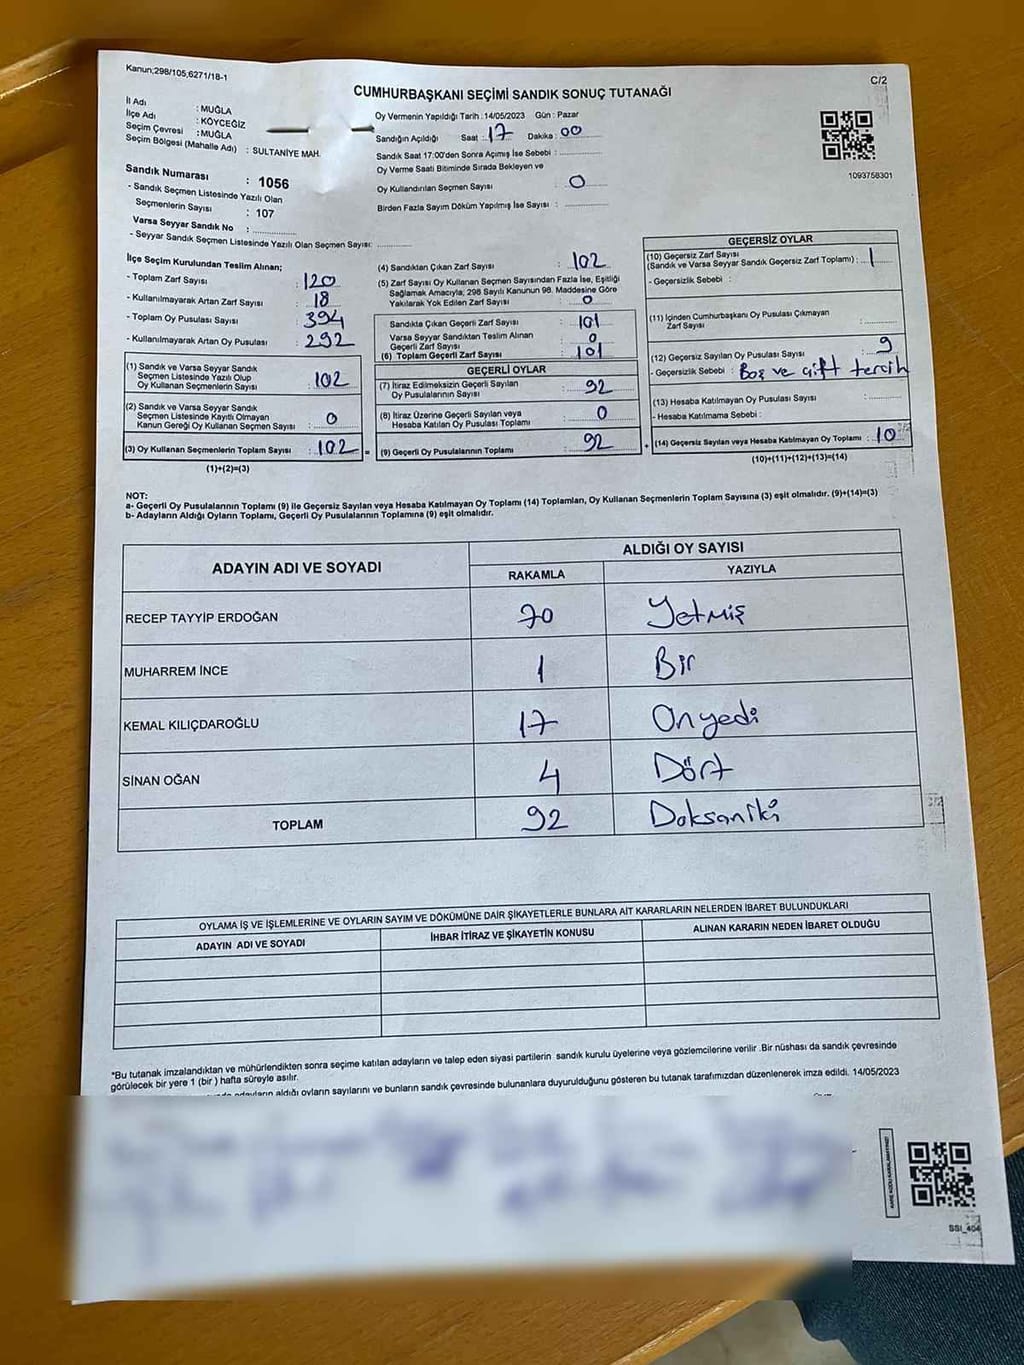 Kanun;298/105,6271/18-1
C/2
CUMHURBAŞKANI SEÇİMİ SANDIK SONUÇ TUTANAĞI
İl Adı : MUĞLA
İlçe Adı : KÖYCEĞİZ
Seçim Çevresi : MUĞLA
Seçim Bölgesi (Mahalle Adı) : SULTANİYE MAH.
Sandık Numarası : 1056
- Sandık Seçmen Listesinde Yazılı Olan
Seçmenlerin Sayısı : 107
Varsa Seyyar Sandık No : ............
- Seyyar Sandık Seçmen Listesinde Yazılı Olan Seçmen Sayısı: ............
Oy Vermenin Yapıldığı Tarih :14/05/2023 Gün : Pazar
Sandığın Açıldığı Saat : 17 Dakika : 00
Sandık Saat 17:00'den Sonra Açımış İse Sebebi : ............
Oy Verme Saati Bitiminde Sırada Bekleyen ve
Oy Kullandırılan Seçmen Sayısı : 0
Birden Fazla Sayım Döküm Yapılmış İse Sayısı : ............
1093758301
İlçe Seçim Kurulundan Teslim Alınan;
- Toplam Zarf Sayısı : 120
- Kullanılmayarak Artan Zarf Sayısı : 18
- Toplam Oy Pusulası Sayısı : 394
- Kullanılmayarak Artan Oy Pusulası : 292
(1) Sandık ve Varsa Seyyar Sandık
Seçmen Listesinde Yazılı Olup
Oy Kullanan Seçmenlerin Sayısı : 102
(2) Sandık ve Varsa Seyyar Sandık
Seçmen Listesinde Kayıtlı Olmayan
Kanun Gereği Oy Kullanan Seçmen Sayısı : 0
(3) Oy Kullanan Seçmenlerin Toplam Sayısı : 102 =
(1)+(2)=(3)
(4) Sandıktan Çıkan Zarf Sayısı : 102
(5) Zarf Sayısı Oy Kullanan Seçmen Sayısından Fazla İse, Eşitliği
Sağlamak Amacıyla, 298 Sayılı Kanunun 98. Maddesine Göre
Yakılarak Yok Edilen Zarf Sayısı : 0
Sandıkta Çıkan Geçerli Zarf Sayısı : 101
Varsa Seyyar Sandıktan Teslim Alınan
Geçerli Zarf Sayısı : 0
(6) Toplam Geçerli Zarf Sayısı : 101
GEÇERLİ OYLAR
(7) İtiraz Edilmeksizin Geçerli Sayılan
Oy Pusulalarının Sayısı : 92
(8) İtiraz Üzerine Geçerli Sayılan veya
Hesaba Katılan Oy Pusulası Toplamı : 0
(9) Geçerli Oy Pusulalarının Toplamı : 92 +
GEÇERSİZ OYLAR
(10) Geçersiz Zarf Sayısı
(Sandık ve Varsa Seyyar Sandık Geçersiz Zarf Toplamı) : 1
- Geçersizlik Sebebi :
(11) İçinden Cumhurbaşkanı Oy Pusulası Çıkmayan
Zarf Sayısı : ............
(12) Geçersiz Sayılan Oy Pusulası Sayısı : 9
- Geçersizlik Sebebi : Boş ve çift tercih
(13) Hesaba Katılmayan Oy Pusulası Sayısı : ............
- Hesaba Katılmama Sebebi :
(14) Geçersiz Sayılan veya Hesaba Katılmayan Oy Toplamı : 10
(10)+(11)+(12)+(13)=(14)
NOT:
a- Geçerli Oy Pusulalarının Toplamı (9) ile Geçersiz Sayılan veya Hesaba Katılmayan Oy Toplamı (14) Toplamları, Oy Kullanan Seçmenlerin Toplam Sayısına (3) eşit olmalıdır. (9)+(14)=(3)
b- Adayların Aldığı Oyların Toplamı, Geçerli Oy Pusulalarının Toplamına (9) eşit olmalıdır.
ADAYIN ADI VE SOYADI
ALDIĞI OY SAYISI
RAKAMLA YAZIYLA
RECEP TAYYİP ERDOĞAN 70 Yetmiş
MUHARREM İNCE 1 Bir
KEMAL KILIÇDAROĞLU 17 Onyedi
SİNAN OĞAN 4 Dört
TOPLAM 92 Doksaniki
OYLAMA İŞ VE İŞLEMLERİNE VE OYLARIN SAYIM VE DÖKÜMÜNE DAİR ŞİKAYETLERLE BUNLARA AİT KARARLARIN NELERDEN İBARET BULUNDUKLARI
ADAYIN ADI VE SOYADI İHBAR İTİRAZ VE ŞİKAYETİN KONUSU ALINAN KARARIN NEDEN İBARET OLDUĞU
*Bu tutanak imzalandıktan ve mühürlendikten sonra seçime katılan adayların ve talep eden siyasi partilerin sandık kurulu üyelerine veya gözlemcilerine verilir .Bir nüshası da sandık çevresinde
görülecek bir yere 1 (bir ) hafta süreyle asılır.
adayların aldığı oyların sayılarını ve bunların sandık çevresinde bulunanlara duyurulduğunu gösteren bu tutanak tarafımızdan düzenlenerek imza edildi. 14/05/2023
SSI_404